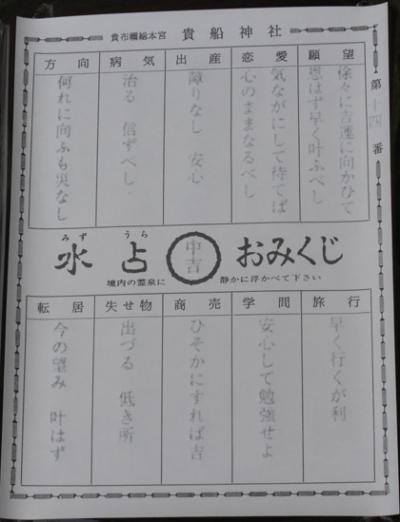 貴布禰総本宮 貴船神社
第十四番
願望
徐々に吉運に向かひて
思はず早く叶ふべし
恋愛
気ながにして待てば
心のままなるべし
出産
障りなし 安心
病気
治る 信ずべし
方向
何れに向ふも災なし
みず うら
水占 中吉 おみくじ
境内の霊泉に 静かに浮かべて下さい
旅行
早く行くが利
学問
安心して勉強せよ
商売
ひそかにすれば吉
失せ物
出づる 低き所
転居
今の望み 叶はず